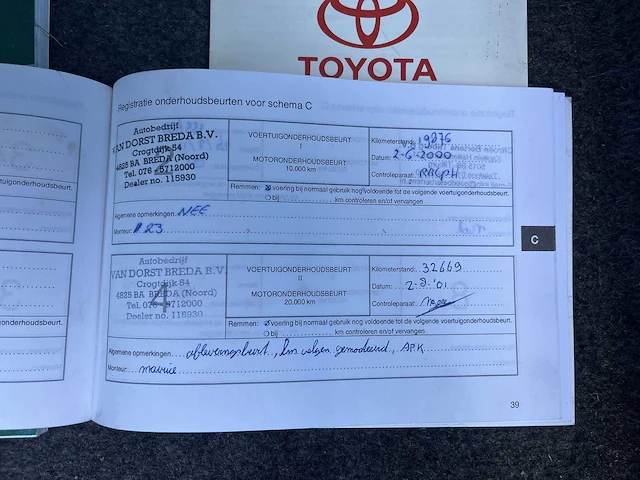 TOYOTA
Registratie onderhoudsbeurten voor schema C
Autobedrijf
VAN DORST BREDA B.V.
Crogtdijk 54
4825 BA BREDA (Noord)
Tel. 076 - 5712000
Dealer no. 115930
VOERTUIGONDERHOUDSBEURT
I
MOTORONDERHOUDSBEURT
10.000 km
Kilometerstand: 19876
Datum: 2-6-2000
Controleparaat: RALPH
Remmen: voering bij normaal gebruik nog voldoende tot de volgende voertuigonderhoudsbeurt.
bij km controleren en/of vervangen
Algemene opmerkingen: NEE
Monteur: 23
C
Autobedrijf
VAN DORST BREDA B.V.
Crogtdijk 54
4825 BA BREDA (Noord)
Tel. 076 - 5712000
Dealer no. 115930
4
VOERTUIGONDERHOUDSBEURT
II
MOTORONDERHOUDSBEURT
20.000 km
Kilometerstand: 32669
Datum: 2-9-'01
Controleparaat:
Remmen: voering bij normaal gebruik nog voldoende tot de volgende voertuigonderhoudsbeurt.
bij km controleren en/of vervangen
Algemene opmerkingen: afleveringsbeurt, lm velgen gemonteerd, APK
Monteur:
39